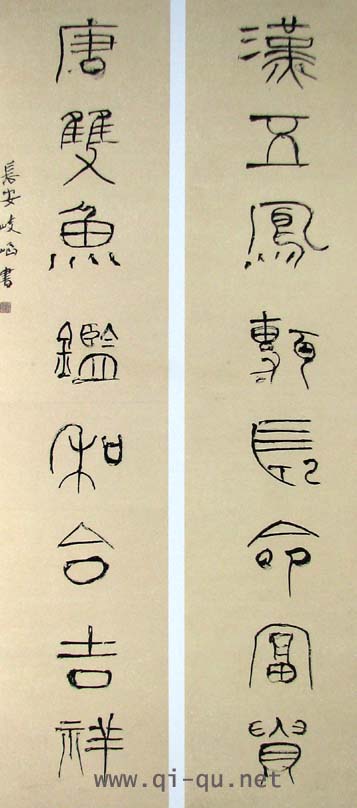 漢五鳳甎長命富貴
唐雙魚鑑和合吉祥
長安岐書
www.qi-qu.net